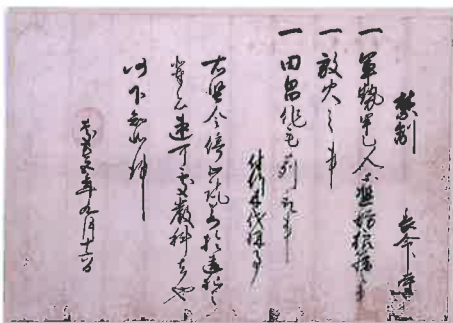 禁制　長命寺
一 軍勢甲乙人等濫妨狼藉事
一 放火之事
一 田畠作毛刈取事
付竹木伐採事
右堅令停止訖若於違犯之
輩者速可処厳科者也
仍下知如件
慶長五年九月十六日